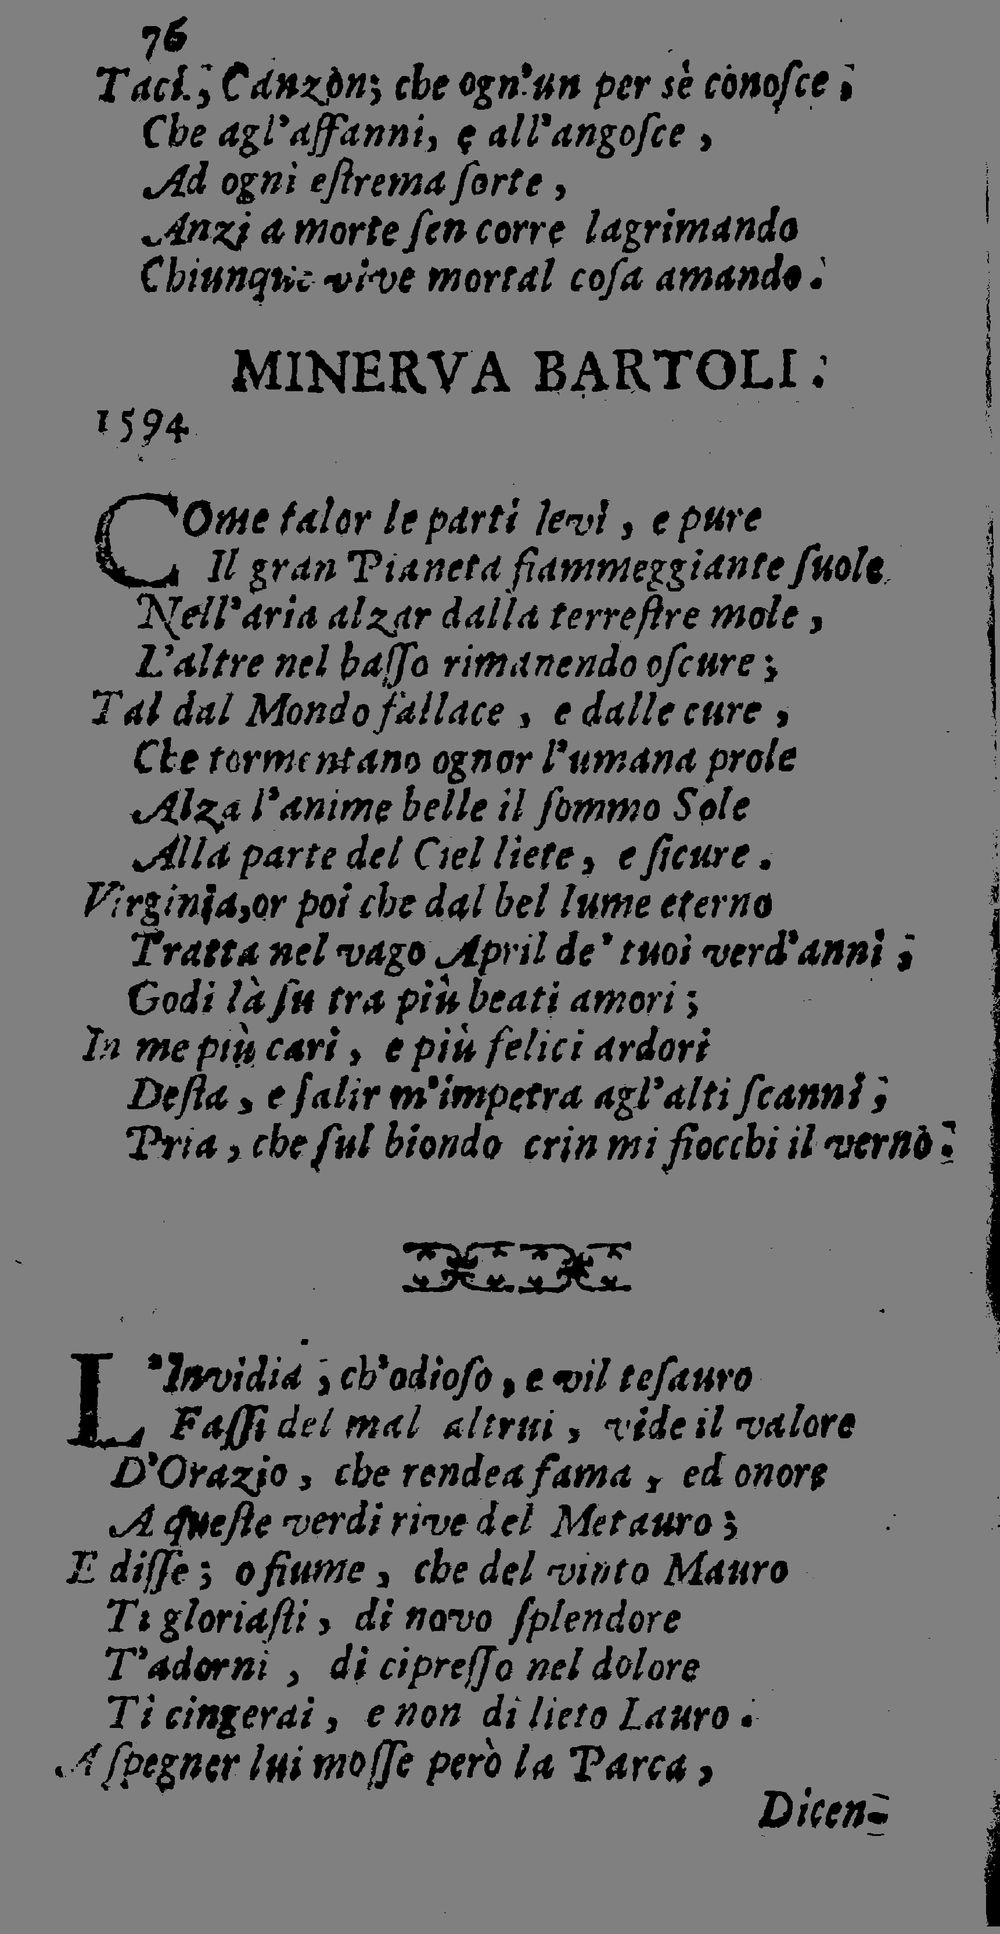 76
Taci, Canzon; che ogn'un per sè conoſce,
Che agl'affanni, e all'angoſce,
Ad ogni eſtrema ſorte,
Anzi a morte ſen corre lagrimando
Chiunque vive mortal coſa amando.
MINERVA BARTOLI.
1594
COme talor le parti levi, e pure
Il gran Pianeta fiammeggiante ſuole
Nell'aria alzar dalla terreſtre mole,
L'altre nel baſſo rimanendo oſcure;
Tal dal Mondo fallace, e dalle cure,
Che tormentano ognor l'umana prole
Alza l'anime belle il ſommo Sole
Alla parte del Ciel liete, e ſicure.
Virginia, or poi che dal bel lume eterno
Tratta nel vago April de' tuoi verd'anni;
Godi là ſu tra più beati amori;
In me più cari, e più felici ardori
Deſta, e ſalir m'impetra agl'alti ſcanni;
Pria, che ſul biondo crin mi fiocchi il verno.
L'Invidia, ch'odioſo, e vil teſauro
Faſſi del mal altrui, vide il valore
D'Orazio, che rendea fama, ed onore
A queſte verdi rive del Metauro;
E diſſe; o fiume, che del vinto Mauro
Ti gloriaſti, di novo ſplendore
T'adorni, di cipreſſo nel dolore
Ti cingerai, e non di lieto Lauro.
A ſpegner lui moſſe però la Parca,
Dicen-